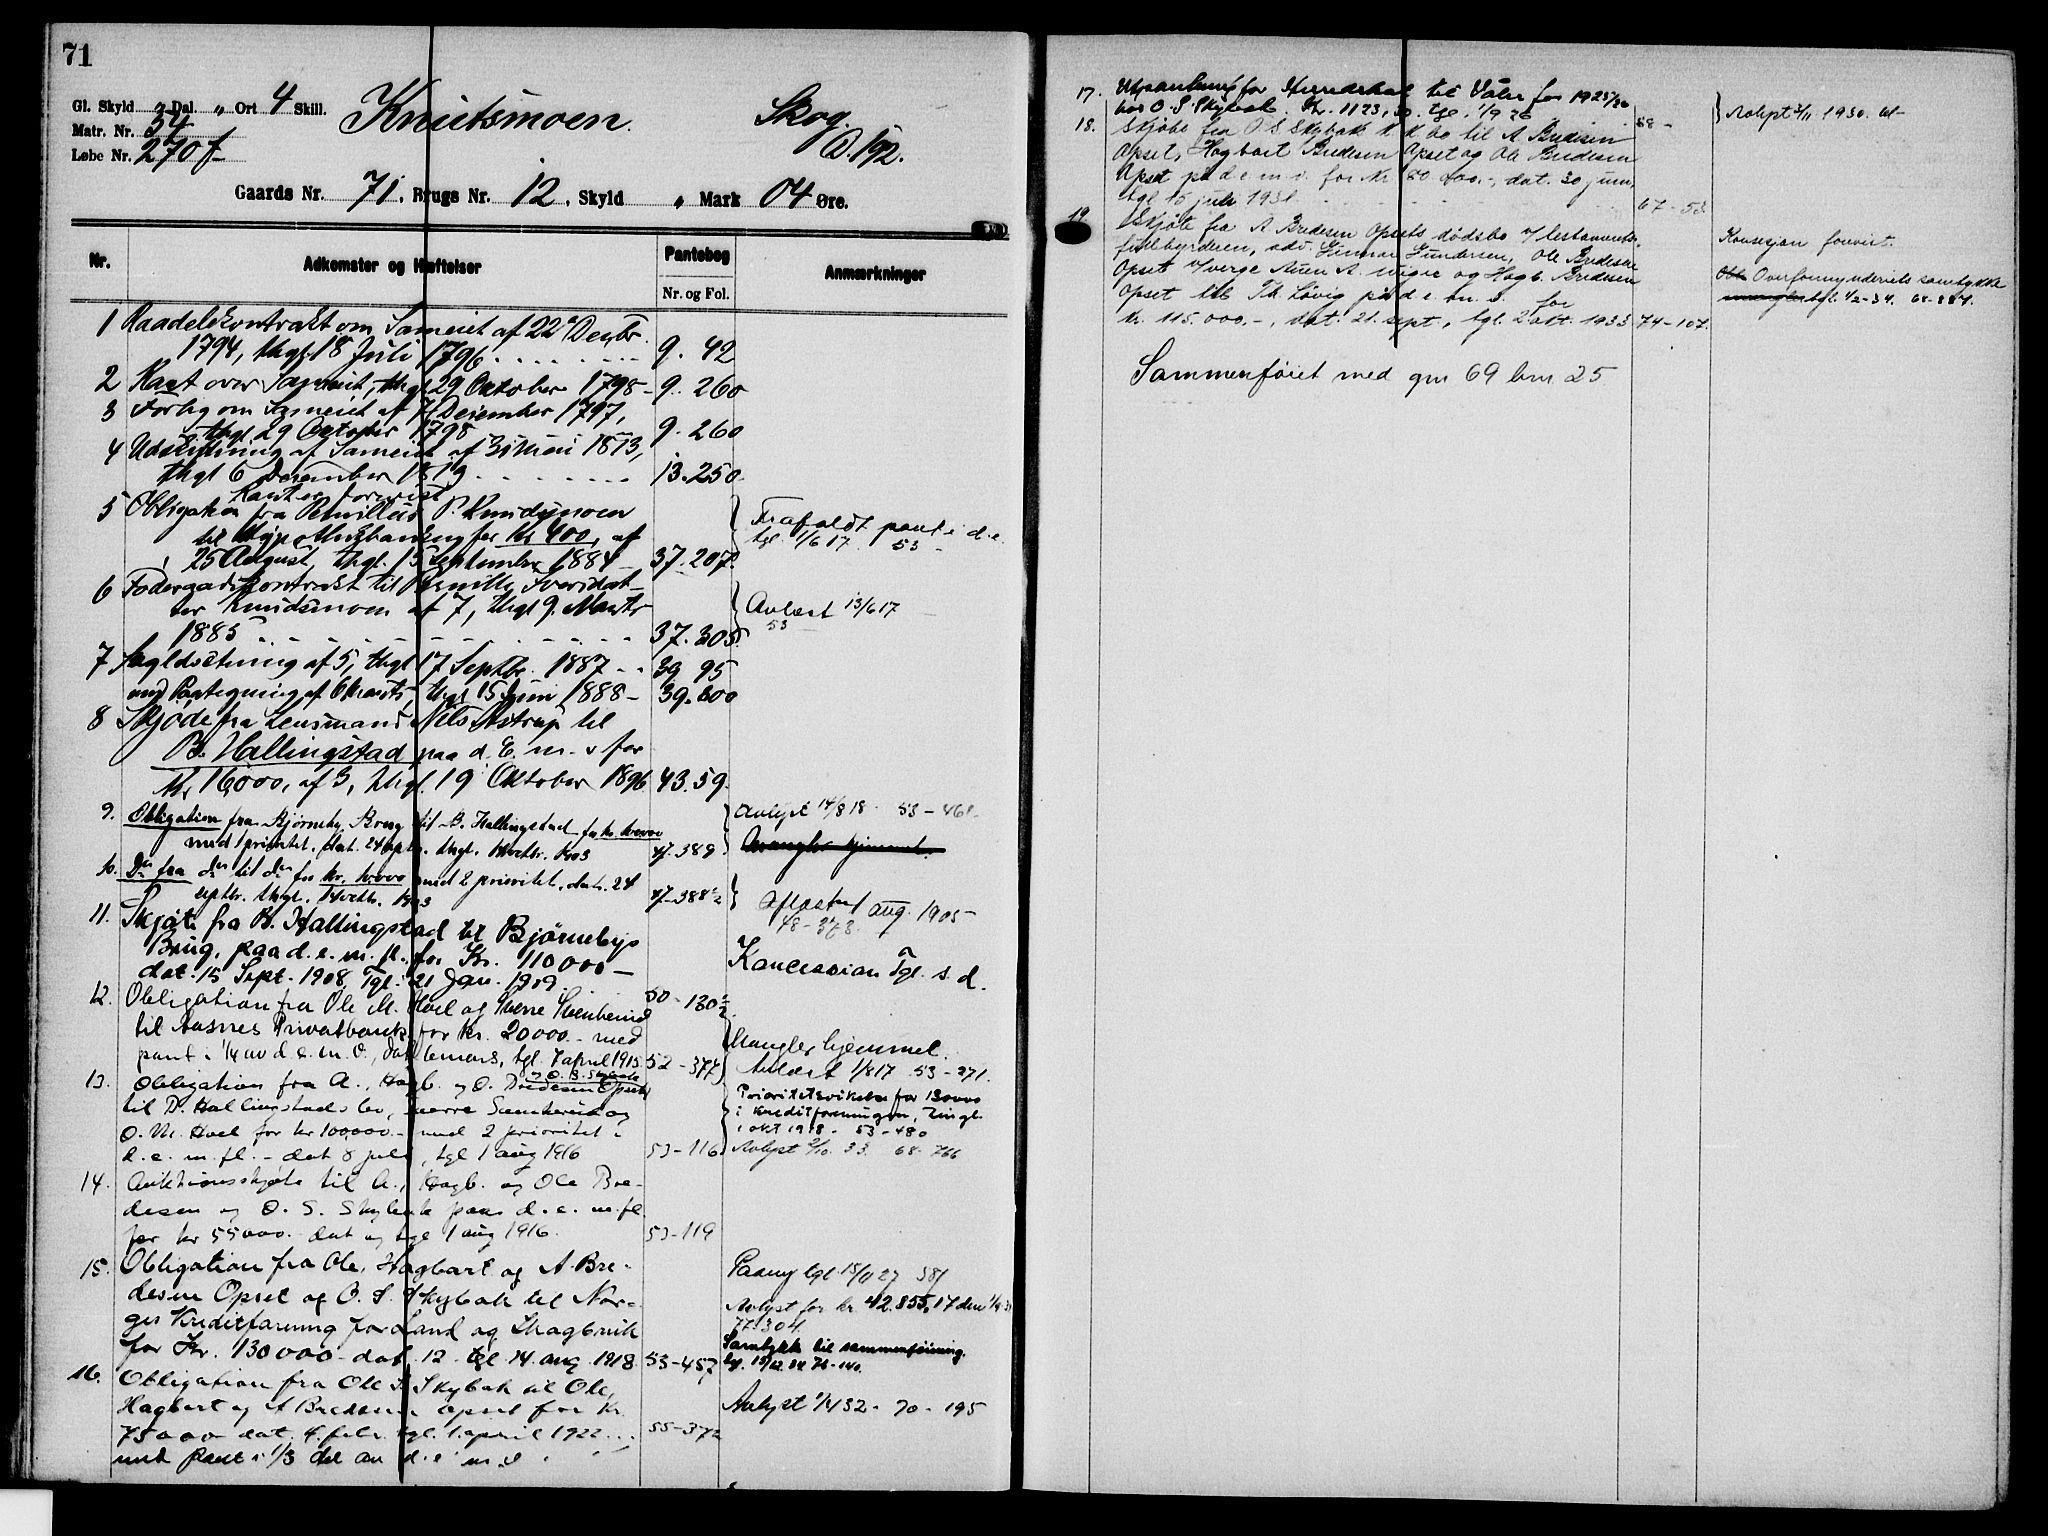 71
Gl. Skyld " Dal. " Ort 4 Skill.
Matr. Nr. 34
Løbe Nr. 270 f
Knutsmoen.
Skog.
D. 192.
Gaards Nr. 71, Brugs Nr. 12, Skyld " Mark 04 Øre.
Nr.
Adkomster og Hæftelser
Pantebog
Nr. og Fol.
Anmærkninger
1 Raadelskontrakt om Sameiet af 22 Decbr
1794, thgl. 18 Juli 1796 9. 42
2 Kart over Sameiet, thgl 29 Oktober 1798 - 9. 260
3 Forlig om Sameiet af 7 Desember 1797,
thgl 29 Oktober 1798 9. 260
4 Udskiftning af Sameiet af 31 Mai 1813,
thgl 6 Desember 1819 13. 250.
Kart er forevist
5 Obligation fra Pernillus P. Knudsmoen
til Hypothekbanken for Kr 400, af
25 August, thgl. 15 September 1884 - 37. 207.
Frafaldt pant i d. e.
tgl. 1/6 17. 53 -
6 Føderaadskontrakt til Pernille Iversdat-
ter Knudsmoen af 7, thgl 9. Marts
1885 37. 305.
Avlæst 13/6 17
53
7 Skyldsetning af 5, thgl 17 Septbr. 1887 - - 39 95
med Paategning af 6 Marts, thgl 15 Juni 1888 - 39. 600
8 Skjøde fra Lensmand Nils Astrup til
B. Hallingstad paa d. E. m. v for
Kr 16000, af 3, thgl. 19 Oktober 1896 43. 59.
9. Obligation fra Bjørneby Brug til B. Hallingstad for kr.
med 1 prioritet, dat. 24 septbr. thgl. 14 octbr. 1903 47. 389
Avlyst 14/8 18. 53 - 461
Mangler hjemmel.
10. Do fra do til do for kr. med 2 prioritet, dat. 24
septbr. thgl. 14 octbr. 1903 47-388
aflæst aug. 1905
48 - 373.
11. Skjøte fra B. Hallingstad til Bjørnebys
Brug, paa d. e. m. fl. for Kr. 110 000 -
dat. 15 Sept. 1908, Tgl. 21 Jan. 1909. 50 - 130
Koncession Tgl. s. d.
12. Obligation fra Ole M. Hoel og Sverre
til Aasnes Privatbank for kr. 20 000 - med
pant i 1/4 av d. e. m. v., dat mars, tgl. 7 april 1915 52 - 377
Mangler hjemmel.
Avlæst 1/8 17 53 - 271.
og O. S. Skybak
13. Obligation fra A., Hagb. og O. Bredesen Opset
til B. Hallingstads bo, Sverre og
O. M. Hoel for kr 100,000 - med 2 prioritet i
d. e. m. fl. - dat 8 juli, tgl 1 aug 1916 53 - 116
Prioritetsvikelse for 130000
i Kreditforeningen, Tingl.
i okt 1918 - 53 - 480
Avlyst 2/10. 33. 68. 766
14. Auktionsskjøte til A., Hagb. og Ole Bre-
desen og O. S. Skybak paa d. e. m. fl.
for kr 55000. dat og tgl 1 aug 1916. 53 - 119
15. Obligation fra Ole, Hagbart og A. Bre-
desen Opset og O. S. Skybak til Nor-
ges Kreditforening for Land og Skogbruk
for Kr. 130 000 - dat. 12. tgl 14. aug. 1918. 53 - 457
Avlyst for kr 42.855,17 den
77. 304
Samtykk til sammenføining.
tgl. 19/12 34 76 - 140.
16. Obligation fra Ole S Skybak til Ole,
Hagbart og A Bredesen Opset for Kr.
75000 dat. 4. febr. tgl. 1. april 1922 55 - 372
med pant i 1/3 del av d. e. m. v.
Avlyst 1/4 32 - 70 - 195
17. Utpantning for Herredskat til Våler for 1925/26
hos O. S. Skybak Kr. 1123,30. tgl. 1/9 26 58 -
Avlyst 2/11 1930. 61 -
18. Skjøte fra O S Skybak k. k. bo til A Bredesen
Opset, Hagbart Bredesen Opset og Ole Bredesen
Opset på d e m. v. for Kr 60 000.-, dat. 30 juni,
tgl 15 juli 1931 67 - 53
19 Skjøte fra A Bredesen Opsets dødsbo v/ testaments-
fuldbyrderen, adv. Gunnar Gundersen, Ole Bredesen
Opset v/ verge Auen A. og Hagb. Bredesen
Opset til Th Løvig på d e m. v. for
Kr. 115.000.-, dat. 21. sept., tgl. 2 okt. 1933 74 - 107.
Konsesjon forevist.
Overformynderiets samtykke
mangler tgl. 1/2 - 34. 68. 884.
Sammenføiet med gnr 69 bnr 25